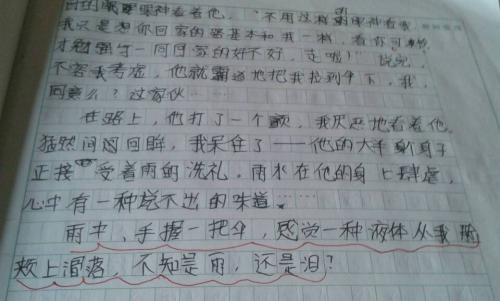 的眼神看着他，“不用这样的眼神看我
我只是想你回家的路基本和我一样，看你可
才勉强与一同回家的好不好，走啦！”说完，
不容我考虑，他就霸道地把我拉到伞下，我，
同意么？这家伙……
在路上，他打了一个颤，我厌恶地看着他，
猛然间回眸，我呆住了——他的大半身子
正接受着雨的洗礼，雨水在他的身上肆虐，
心中有一种说不出的味道。……
雨中，手握一把伞，感觉一种液体从我
颊上滑落，不知是雨，还是泪？